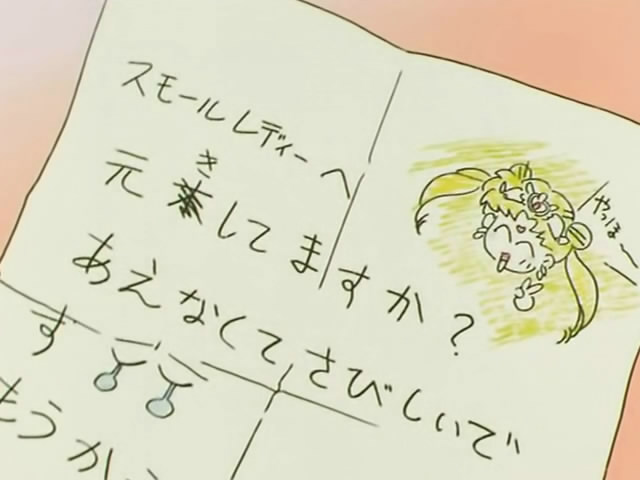 スモールレディーへ
元きしてますか？
あえなくてさびしいで
す
もうか
やっほー